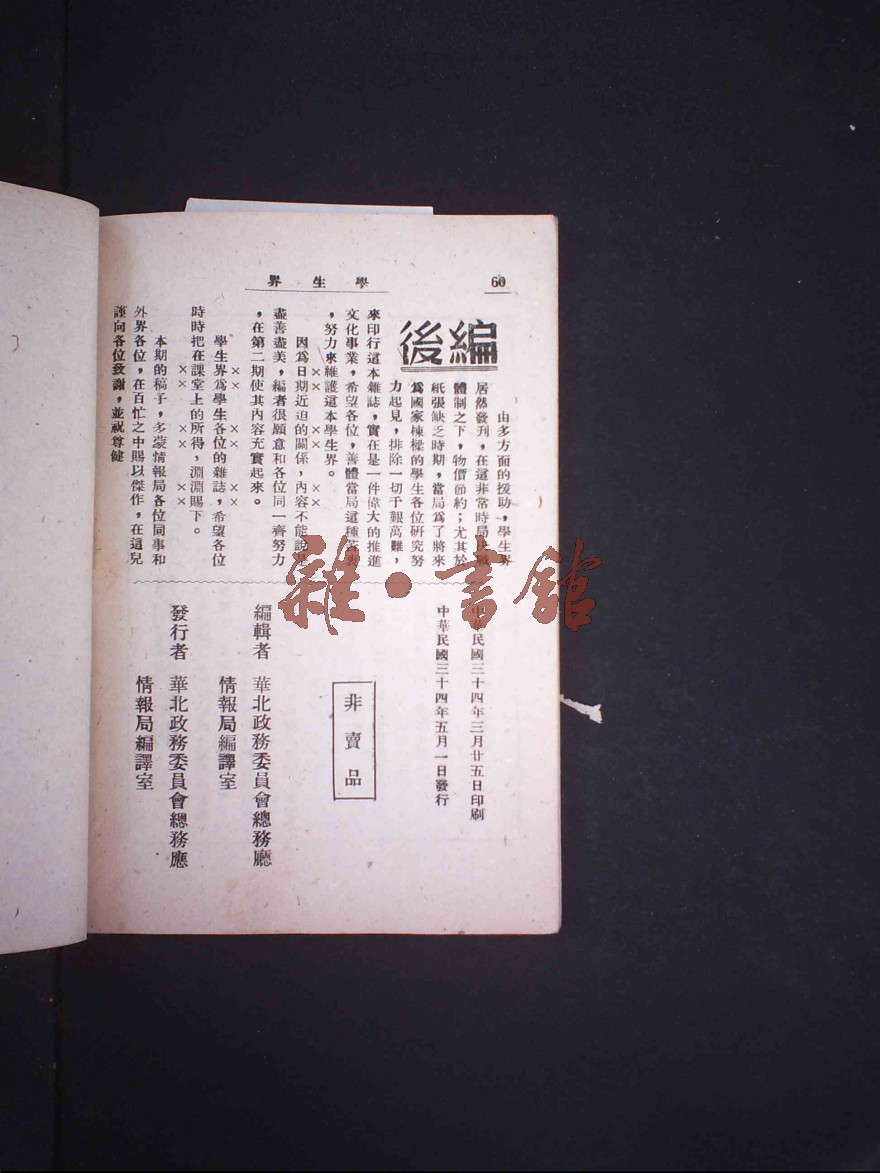 60
學生界
編後
由多方面的援助，學生界
居然發刊，在這非常時局決戰
體制之下，物價節約；尤其於
紙張缺乏時期，當局爲了將來
爲國家棟樑的學生各位研究努
力起見，排除一切千艱萬難，
來印行這本雜誌，實在是一件偉大的推進
文化事業，希望各位，善體當局這種苦衷
，努力來維護這本學生界。
×× ×× ××
因爲日期近迫的關係，內容不能說是
盡善盡美，編者很願意和各位同一齊努力
，在第二期使其內容充實起來。
×× ×× ××
學生界爲學生各位的雜誌，希望各位
時時把在課堂上的所得，淵淵賜下。
×× ×× ××
本期的稿子，多蒙情報局各位同事和
外界各位，在百忙之中賜以傑作，在這兒
謹向各位致謝，並祝尊健
中華民國三十四年三月廿五日印刷
中華民國三十四年五月一日發行
非賣品
編輯者 華北政務委員會總務廳
情報局編譯室
發行者 華北政務委員會總務應
情報局編譯室
雜·書館